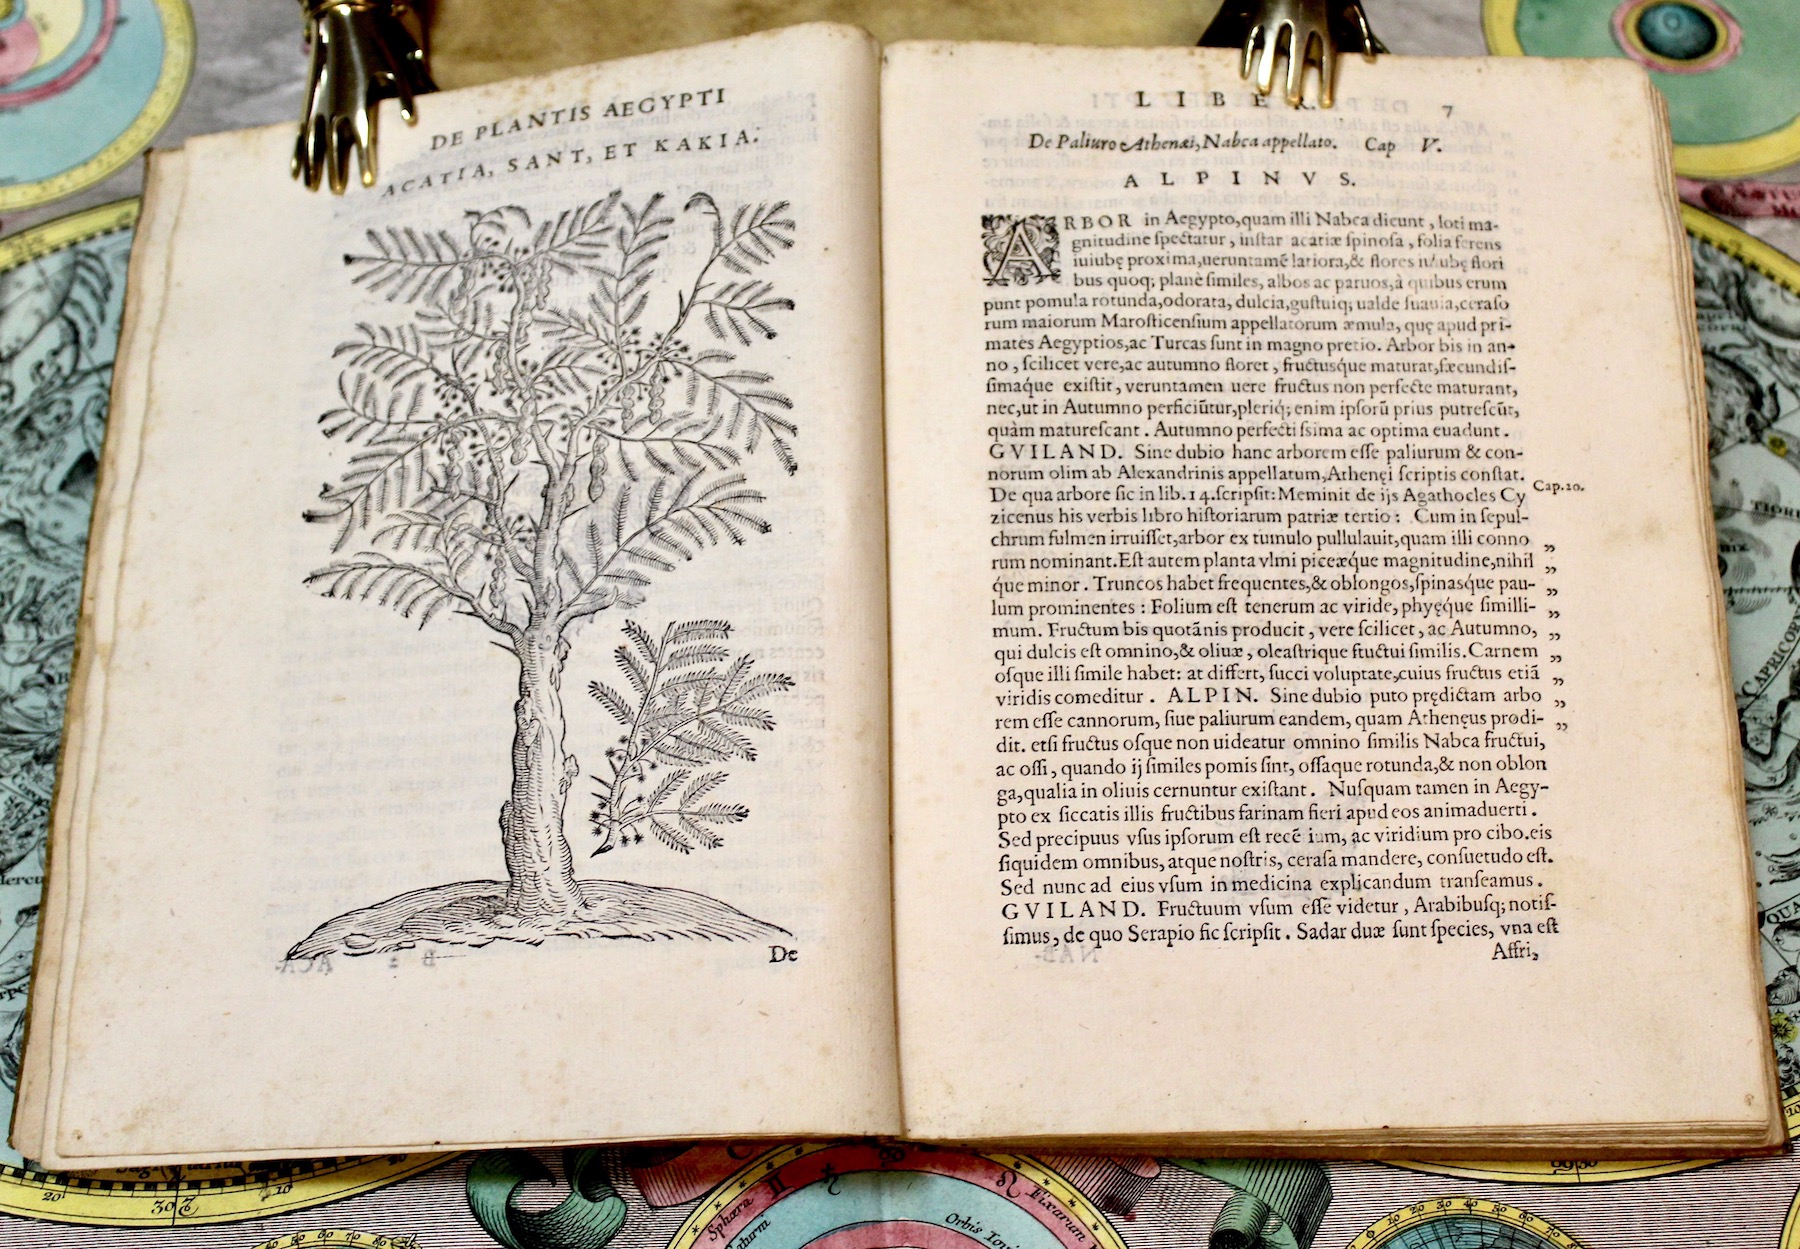 DE PLANTIS AEGYPTI
ACATIA, SANT, ET KAKIA.
De
LIBER.
7
De Paliuro Athenæi, Nabca appellato. Cap V.
ALPINVS.
ARBOR in Aegypto,quam illi Nabca dicunt, loti ma-
gnitudine ſpectatur, inſtar acatiæ ſpinoſa, folia ferens
iuiubę proxima,ueruntamē latiora,& flores iuiubę flori
bus quoq; planè ſimiles, albos ac paruos,à quibus erum
punt pomula rotunda,odorata, dulcia,guſtuiq; ualde ſuauia,ceraſo
rum maiorum Maroſticenſium appellatorum æmula, quę apud pri-
mates Aegyptios,ac Turcas ſunt in magno pretio. Arbor bis in an-
no, ſcilicet vere,ac autumno floret, fructusque maturat,fœcundiſ-
ſimaque exiſtit, veruntamen uere fructus non perfecte maturant,
nec,ut in Autumno perficiūtur,pleriq; enim ipſorū prius putreſcūt,
quàm matureſcant. Autumno perfectiſsima ac optima euadunt.
GVILAND. Sine dubio hanc arborem eſſe paliurum & con-
norum olim ab Alexandrinis appellatum,Athenęi ſcriptis conſtat.
De qua arbore ſic in lib.14.ſcripſit:Meminit de ijs Agathocles Cy
Cap.20.
zicenus his verbis libro hiſtoriarum patriæ tertio: Cum in ſepul-
chrum fulmen irruiſſet,arbor ex tumulo pullulauit,quam illi conno „
rum nominant.Eſt autem planta vlmi piceæque magnitudine,nihil „
que minor. Truncos habet frequentes,& oblongos,ſpinasque pau- „
lum prominentes: Folium eſt tenerum ac viride, phyęque ſimilli- „
mum. Fructum bis quotānis producit, vere ſcilicet, ac Autumno, „
qui dulcis eſt omnino,& oliuæ, oleaſtrique fructui ſimilis.Carnem „
oſque illi ſimile habet: at differt, ſucci voluptate,cuius fructus etiā „
viridis comeditur. ALPIN. Sine dubio puto prędictam arbo „
rem eſſe cannorum, ſiue paliurum eandem, quam Athenęus prodi- „
dit. etſi fructus oſque non uideatur omnino ſimilis Nabca fructui,
ac oſſi, quando ij ſimiles pomis ſint, oſſaque rotunda,& non oblon
ga,qualia in oliuis cernuntur exiſtant. Nuſquam tamen in Aegy-
pto ex ſiccatis illis fructibus farinam fieri apud eos animaduerti.
Sed precipuus vſus ipſorum eſt recē ium, ac viridium pro cibo.eis
ſiquidem omnibus, atque noſtris, ceraſa mandere, conſuetudo eſt.
Sed nunc ad eius vſum in medicina explicandum tranſeamus.
GVILAND. Fructuum vſum eſſe videtur, Arabibuſq; notiſ-
ſimus, de quo Serapio ſic ſcripſit. Sadar duæ ſunt ſpecies, vna eſt
Affri,
CAPRICOR
Sphæra
Orbis Iovi
Fixarum